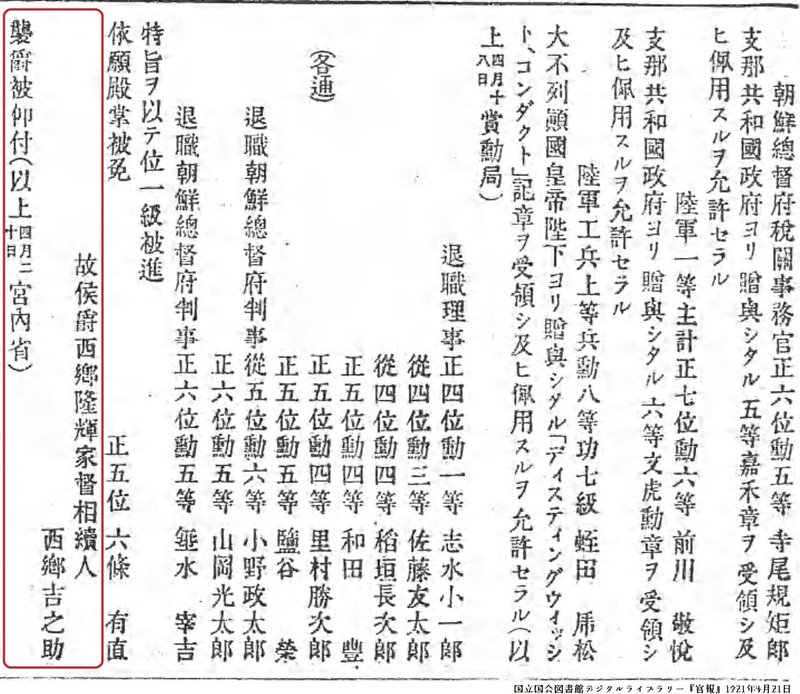 朝鮮總督府稅關事務官正六位勳五等 寺尾規矩郎
支那共和國政府ヨリ贈與シタル五等嘉禾章ヲ受領シ及
ヒ佩用スルヲ允許セラル
陸軍一等主計正七位勳六等 前川 敬悅
支那共和國政府ヨリ贈與シタル六等文虎勳章ヲ受領シ
及ヒ佩用スルヲ允許セラル
陸軍工兵上等兵勳八等功七級 蛭田 席松
大不列顚國皇帝陛下ヨリ贈與シタル「ディスティングウィッシ
ト、コンダクト」記章ヲ受領シ及ヒ佩用スルヲ允許セラル(以
上四月十八日賞勳局)
退職理事正四位勳一等 志水小一郎
從四位勳三等 佐藤友太郎
從四位勳四等 稻垣長次郎
正五位勳四等 和田 豊
(各通) 正五位勳四等 里村勝次郎
正五位勳五等 鹽谷 榮
退職朝鮮總督府判事從五位勳六等 小野政太郎
正六位勳五等 山岡光太郎
退職朝鮮總督府判事正六位勳五等 垂水 宰吉
特旨ヲ以テ位一級被進
正五位 六條 有直
依願殿掌被免
故侯爵西鄕隆輝家督相續人
西鄕吉之助
襲爵被仰付(以上四月二十日宮內省)
国立国会図書館デジタルライブラリー『官報』1921年4月21日